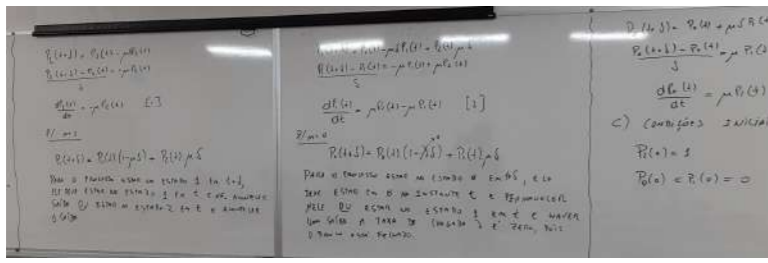 P₂(t+δ) = P₂(t) - μδP₂(t)
P₂(t+δ) - P₂(t) = -μP₂(t)
δ
dP₂(t) = -μP₂(t) [1]
dt
P/ n=1
P₁(t+δ) = P₁(t)(1-μδ) + P₂(t)μδ
PARA O PROCESSO ESTAR NO ESTADO 1 EM t+δ,
ESTAR NO ESTADO 1 EM t E NÃO ACONTECER
SAÍDA OU ESTAR NO ESTADO 2 EM t E ACONTECER
SAÍDA
P₁(t+δ) = P₁(t) - μδP₁(t) + P₂(t)μδ
P₁(t+δ) - P₁(t) = -μP₁(t) + μP₂(t)
δ
dP₁(t) = μP₂(t) - μP₁(t) [2]
dt
P/ n=0
P₀(t+δ) = P₀(t)(1-λδ) + P₁(t)μδ
PARA O PROCESSO ESTAR NO ESTADO 0 EM t+δ, ELE
DEVE ESTAR EM 0 NO INSTANTE t E PERMANECER
NELE OU ESTAR NO ESTADO 1 EM t E HAVER
UMA SAÍDA. A TAXA DE CHEGADA É ZERO, POIS
P₀(t+δ) = P₀(t) + μδP₁(t)
P₀(t+δ) - P₀(t) = μP₁(t)
δ
dP₀(t) = μP₁(t)
dt
C) CONDIÇÕES INICIAI
P₂(0) = 1
P₀(0) = P₁(0) = 0